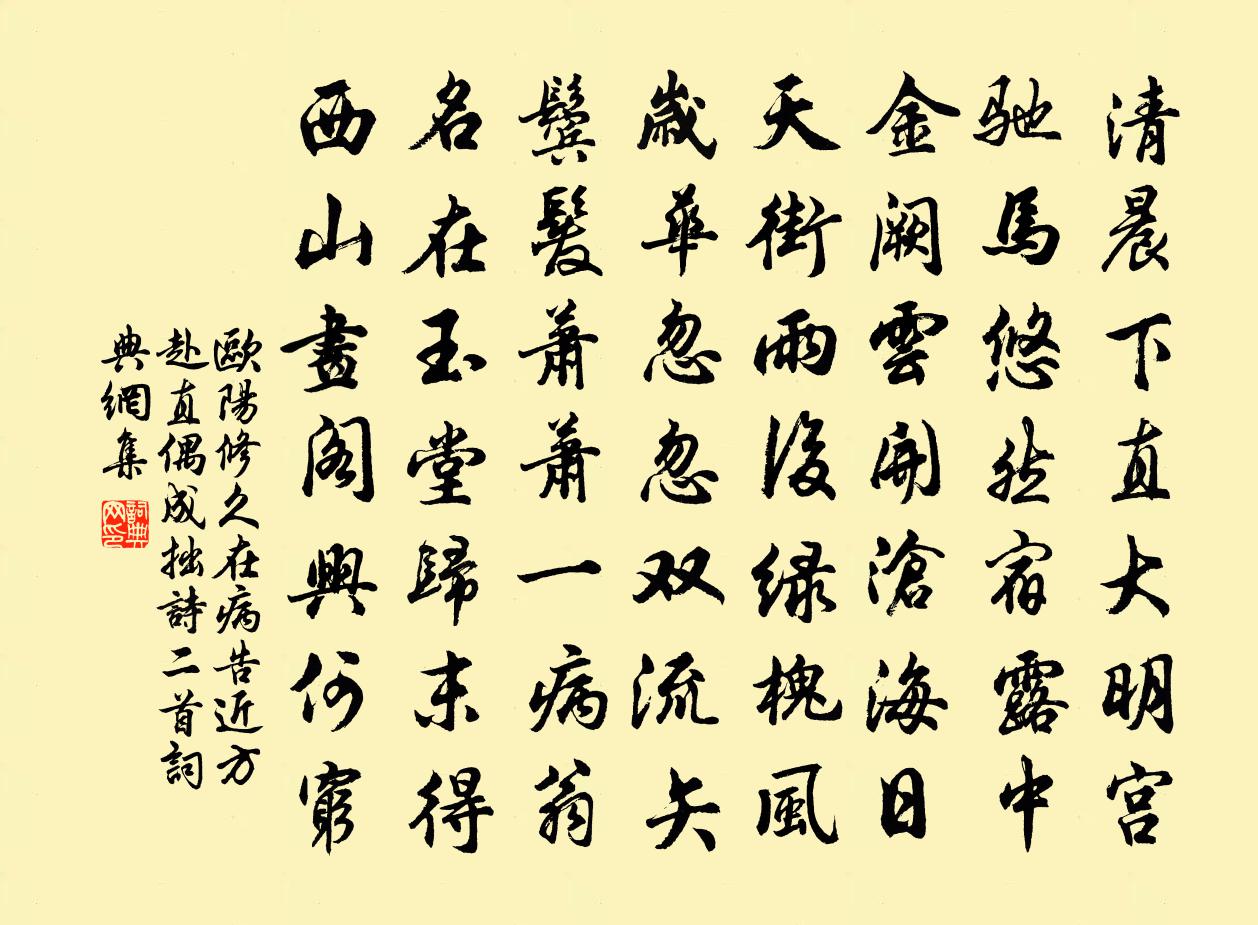 清晨下直大明宮
馳馬悠然宿露中
金闕雲開滄海日
天街雨後綠槐風
歲華忽忽双流矢
鬢髮蕭蕭一病翁
名在玉堂歸未得
西山畫閣興何窮
歐陽修久在病告近方
赴直偶成拙詩二首詞
典網集
詞典網印